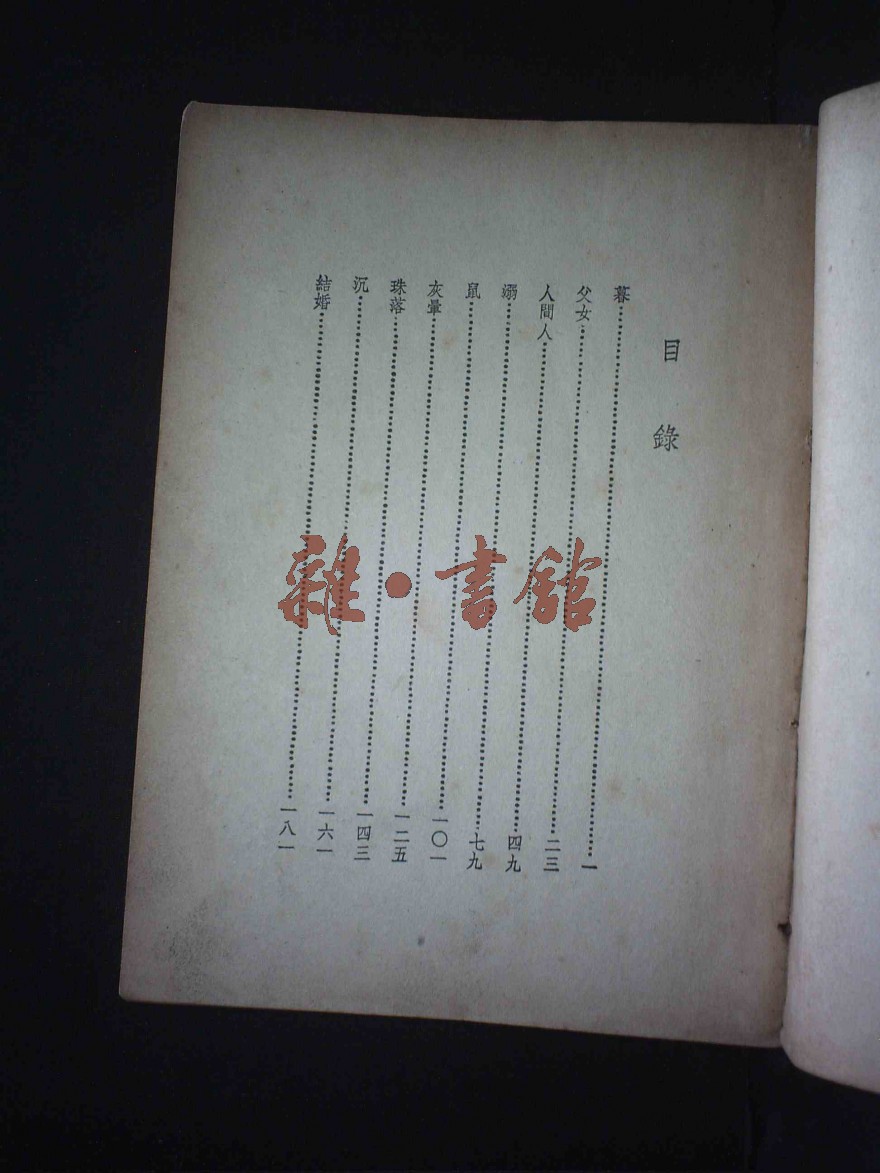 目錄
暮……一
父女……二三
人間人……四九
溺……七九
鼠……一〇一
灰暈……一二五
珠落……一四三
沉……一六一
結婚……一八一
雜·書館